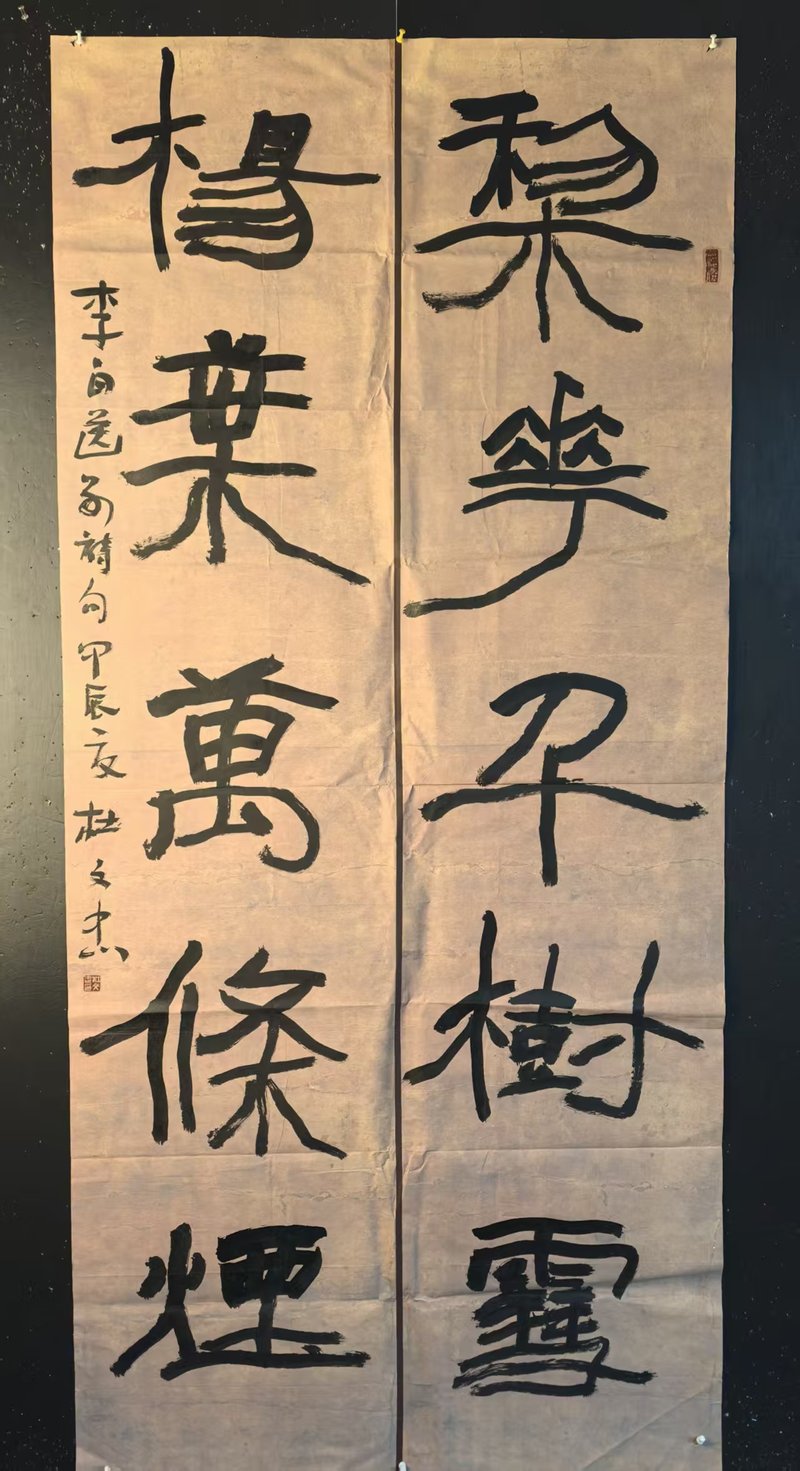 梨花千樹雪
楊葉萬條煙
李白送别詩句甲辰夏杜文忠